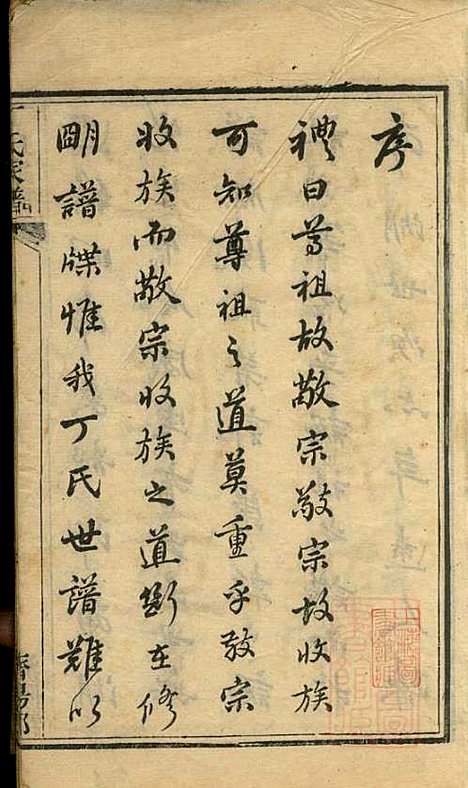 序
禮曰尊祖故敬宗敬宗故收族
可知尊祖之道莫重乎敬宗
收族而敬宗收族之道斷在修
明譜牒惟我丁氏世譜難以
丁氏家譜
濟陽郡